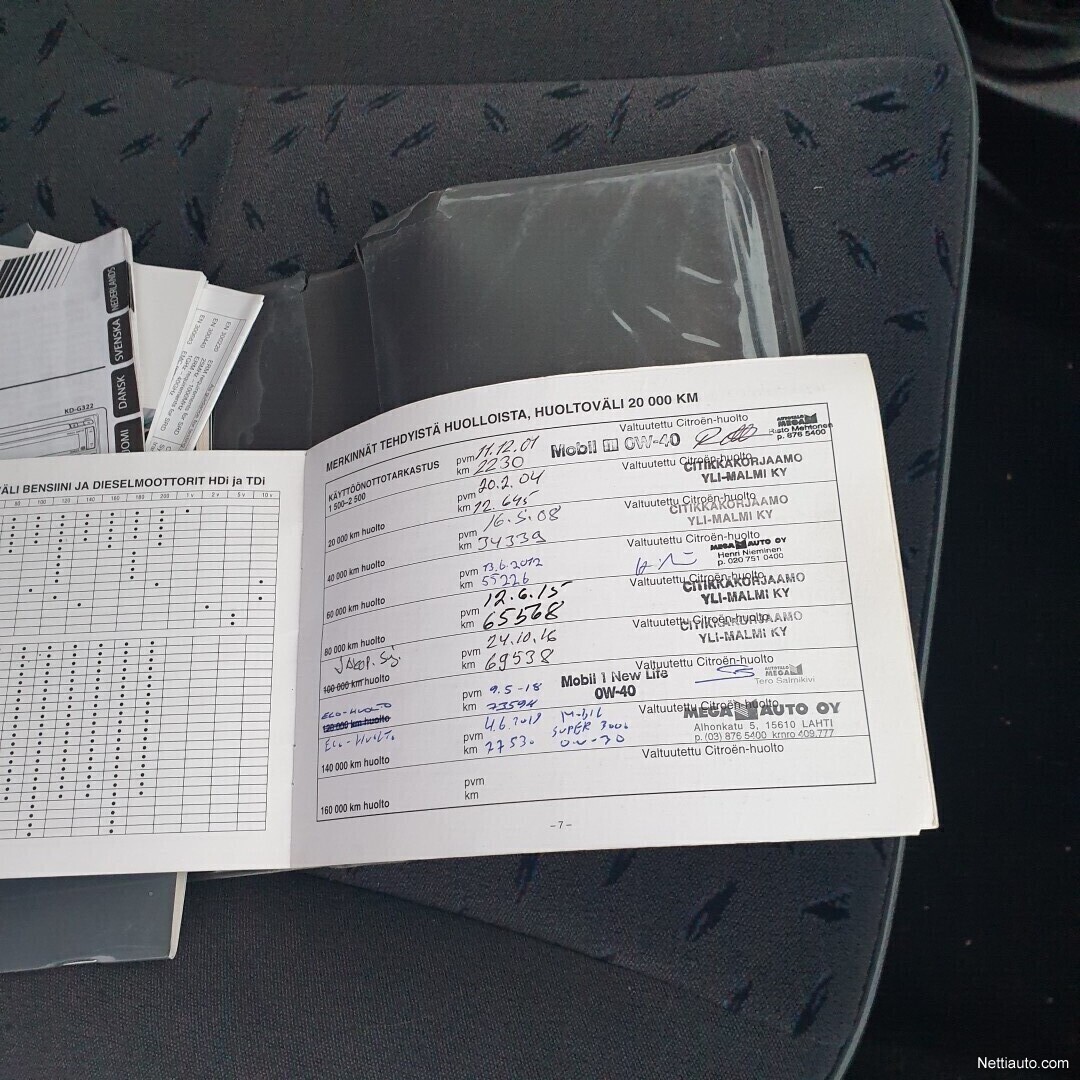 NEDERLANDS
SVENSKA
DANSK
KD-G322
EN 300220
EN 300440
EN 300683
VÄLI BENSIINI JA DIESELMOOTTORIT HDi ja TDi
80 100 120 140 160 180 200 1 v 2 v 5 v 10 v
MERKINNÄT TEHDYISTÄ HUOLLOISTA, HUOLTOVÄLI 20 000 KM
KÄYTTÖÖNOTTOTARKASTUS
1 500–2 500
pvm 11.12.01
km 2230
Mobil 1 0W-40
Valtuutettu Citroën-huolto
AUTOTALO
MEGA
Risto Mehtonen
p. 876 5400
20 000 km huolto
pvm 20.2.04
km 12.645
Valtuutettu Citroën-huolto
CITIKKAKORJAAMO
YLI-MALMI KY
40 000 km huolto
pvm 16.5.08
km 34339
Valtuutettu Citroën-huolto
CITIKKAKORJAAMO
YLI-MALMI KY
60 000 km huolto
pvm 13.6.2012
km 55226
Valtuutettu Citroën-huolto
MEGA AUTO OY
Henri Nieminen
p. 020 751 0400
80 000 km huolto
pvm 12.6.15
km 65568
Valtuutettu Citroën-huolto
CITIKKAKORJAAMO
YLI-MALMI KY
100 000 km huolto
pvm 24.10.16
km 69538
Valtuutettu Citroën-huolto
CITIKKAKORJAAMO
YLI-MALMI KY
ECO-HUOLTO
120 000 km huolto
pvm 9.5-18
km 73594
Mobil 1 New Life
0W-40
Valtuutettu Citroën-huolto
AUTOTALO
MEGA
Tero Salmikivi
ECO-HUOLTO
140 000 km huolto
pvm
km
MOBIL
SUPER 3000
Valtuutettu Citroën-huolto
MEGA AUTO OY
Alhonkatu 5, 15610 LAHTI
p. (03) 876 5400 krnro 409.777
160 000 km huolto
pvm
km
Valtuutettu Citroën-huolto
–7–
Nettiauto.com